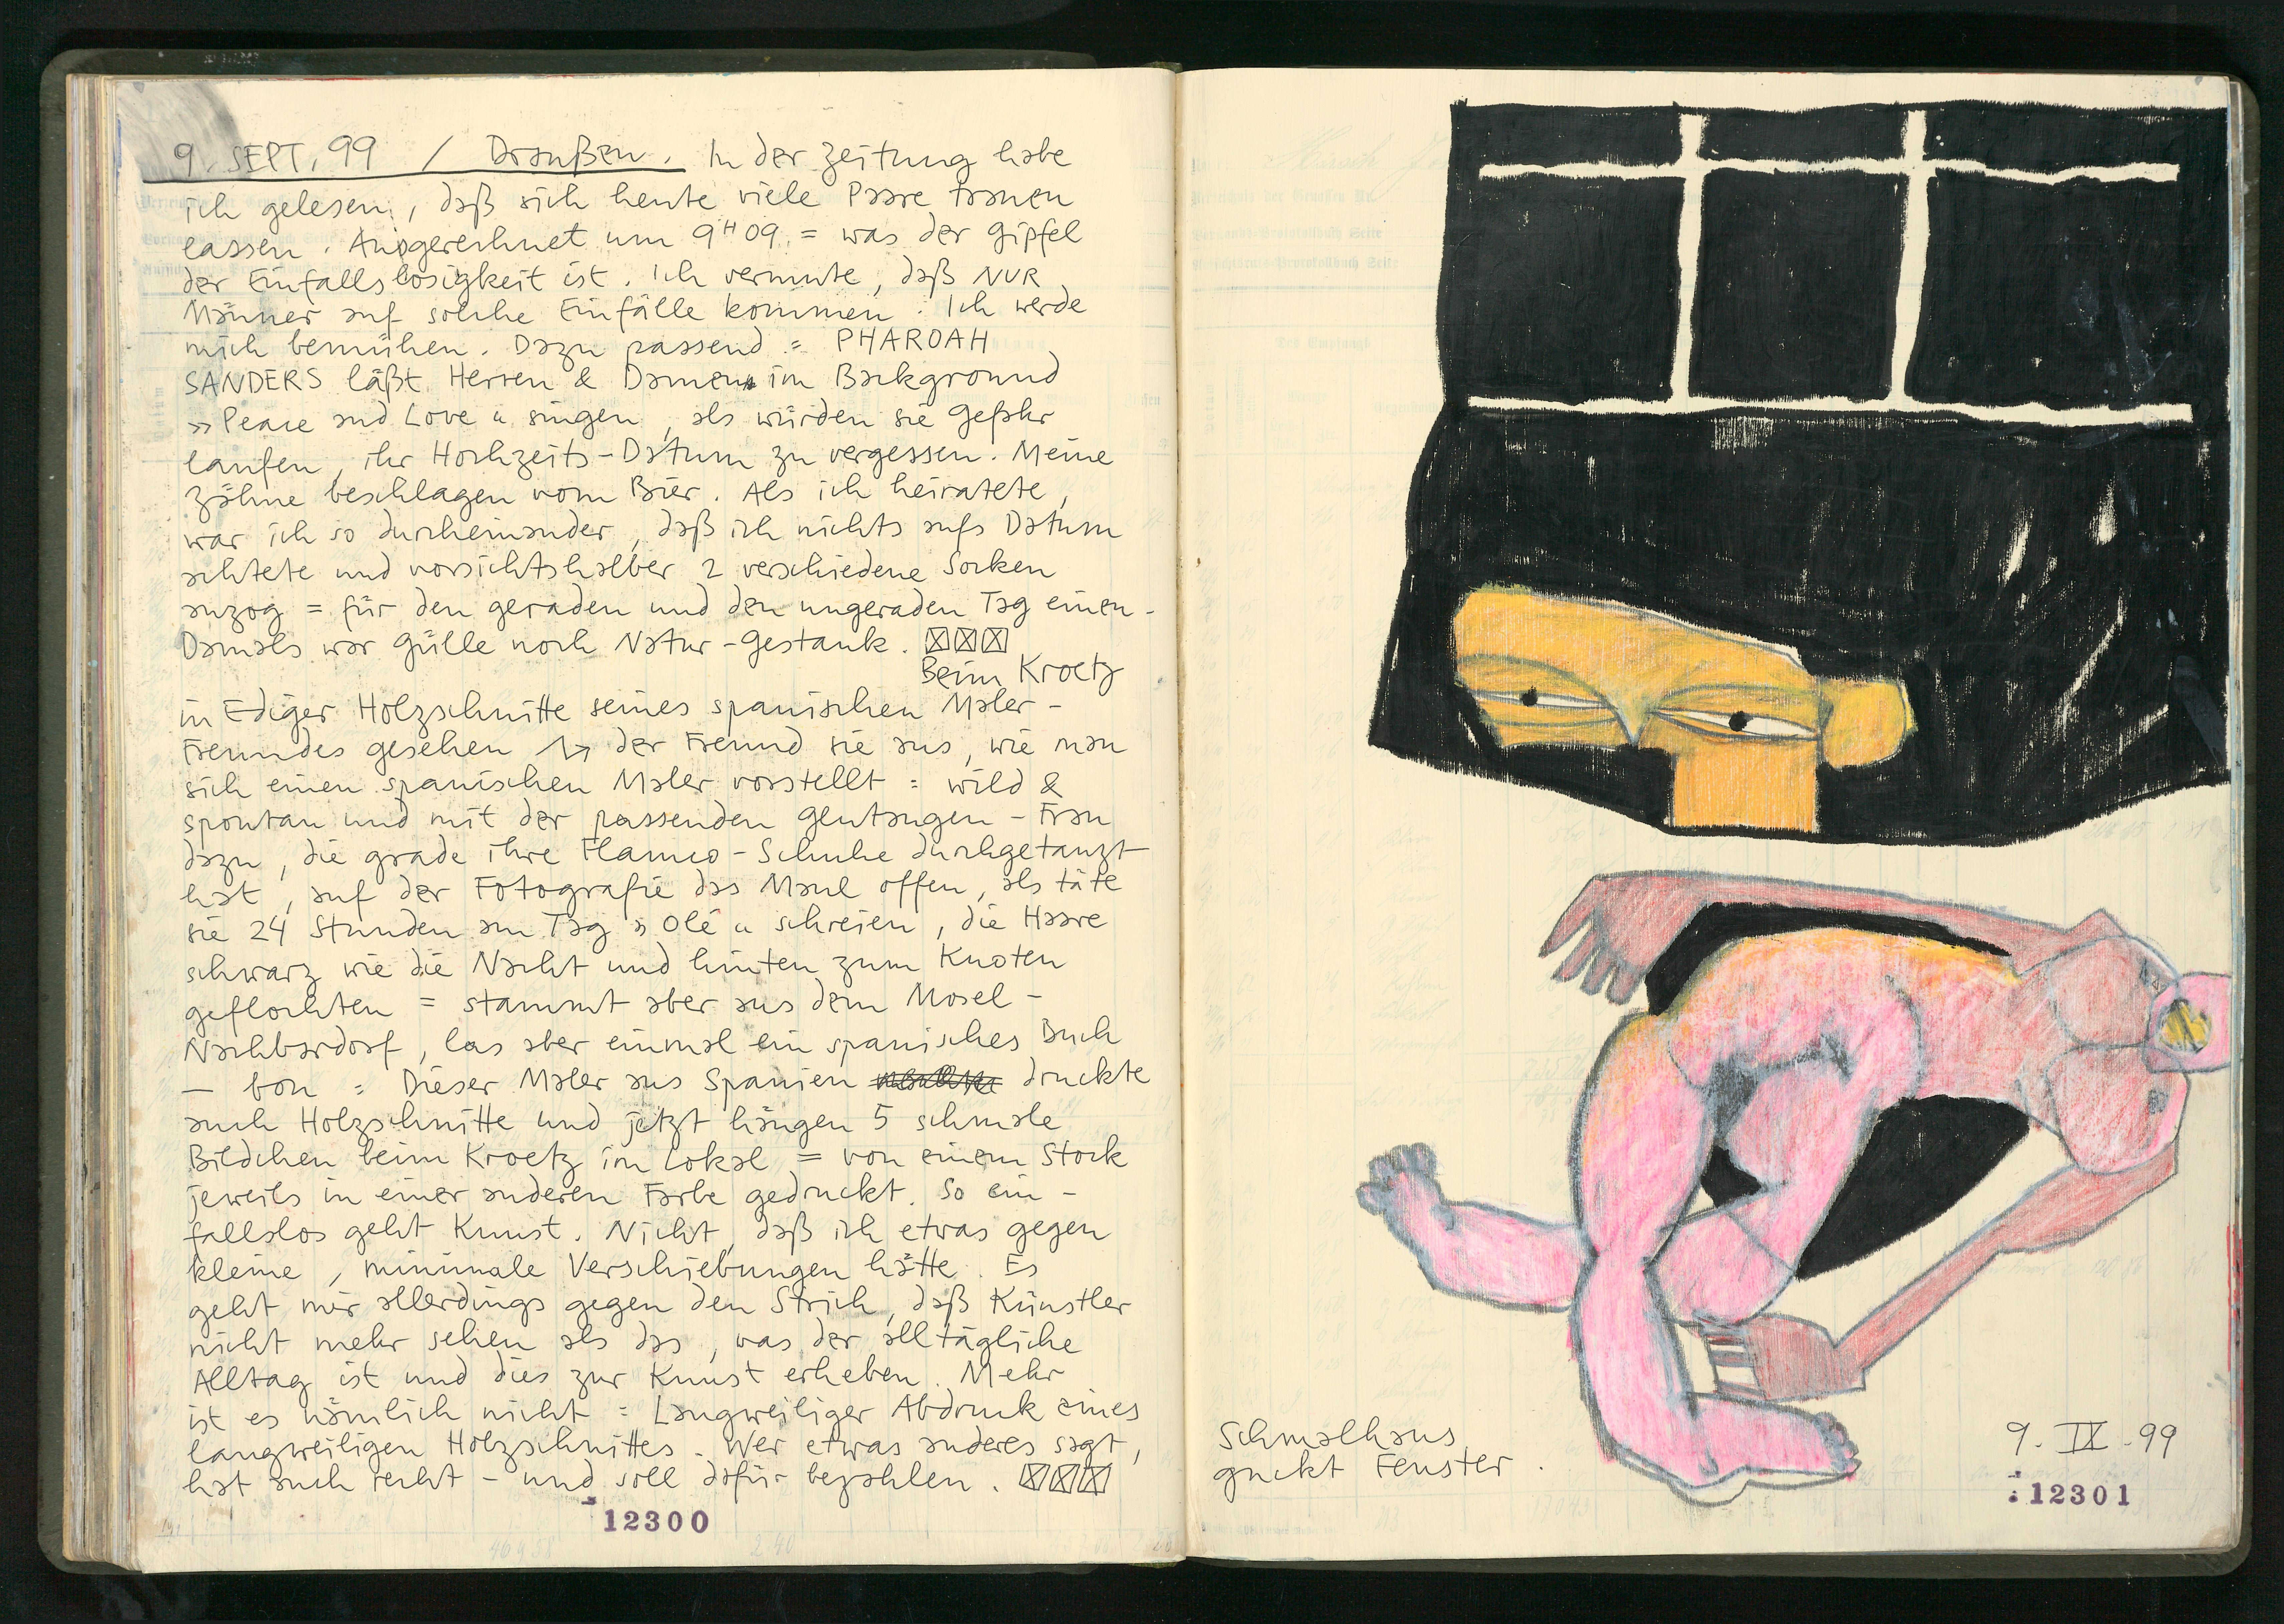 9. SEPT. 99 / Draußen. In der Zeitung habe
ich gelesen, daß sich heute viele Paare trauen
lassen. Ausgerechnet um 9H09. = was der Gipfel
der Einfallslosigkeit ist. Ich vermute, daß NUR
Männer auf solche Einfälle kommen. Ich werde
mich bemühen. Dazu passend = PHAROAH
SANDERS läßt Herren & Damen im Background
»Peace and Love« singen, als würden sie Gefahr
laufen, ihr Hochzeits-Datum zu vergessen. Meine
Zähne beschlagen vom Bier. Als ich heiratete,
war ich so durcheinander, daß ich nichts aufs Datum
achtete und vorsichtshalber 2 verschiedene Socken
anzog = für den geraden und den ungeraden Tag einen.
Damals war Gülle noch Natur-Gestank.
Beim Kroetz
in Ediger Holzschnitte seines spanischen Maler-
Freundes gesehen der Freund sie aus, wie man
sich einen spanischen Maler vorstellt = wild &
spontan und mit der passenden Glutaugen-Frau
dazu, die grade ihre Flamco-Schuhe durchgetanzt
hat, auf der Fotografie das Maul offen, als täte
sie 24 Stunden am Tag »Olé« schreien, die Haare
schwarz wie die Nacht und hinten zum Knoten
geflochten = stammt aber aus dem Mosel-
Nachbardorf, las aber einmal ein spanisches Buch
– bon = Dieser Maler aus Spanien druckte
auch Holzschnitte und jetzt hängen 5 schmale
Bildchen beim Kroetz im Lokal = von einem Stock
jeweils in einer anderen Farbe gedruckt. So ein-
fallslos geht Kunst. Nicht, daß ich etwas gegen
kleine, minimale Verschiebungen hätte. Es
geht mir allerdings gegen den Strich, daß Künstler
nicht mehr sehen als das, was der alltägliche
Alltag ist und dies zur Kunst erheben. Mehr
ist es nämlich nicht = Langweiliger Abdruck eines
langweiligen Holzschnittes. Wer etwas anderes sagt,
hat auch recht – und soll dafür bezahlen.
12300
Schmalhans
guckt Fenster.
9. IX. 99
12301